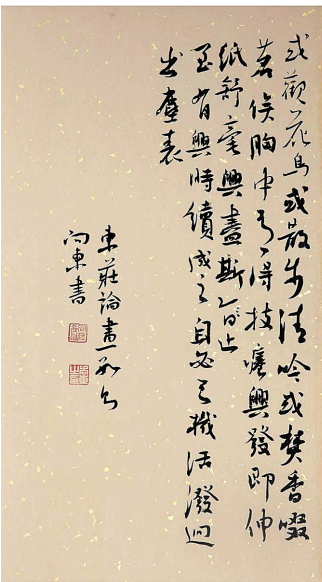 或觀花鳥或散步清吟或焚香啜
茗俟胸中有得技癢興發即伸
紙舒毫興盡斯止
至有興時續成之自必天機活潑迥
出塵表
東莊論畫一則
向東書